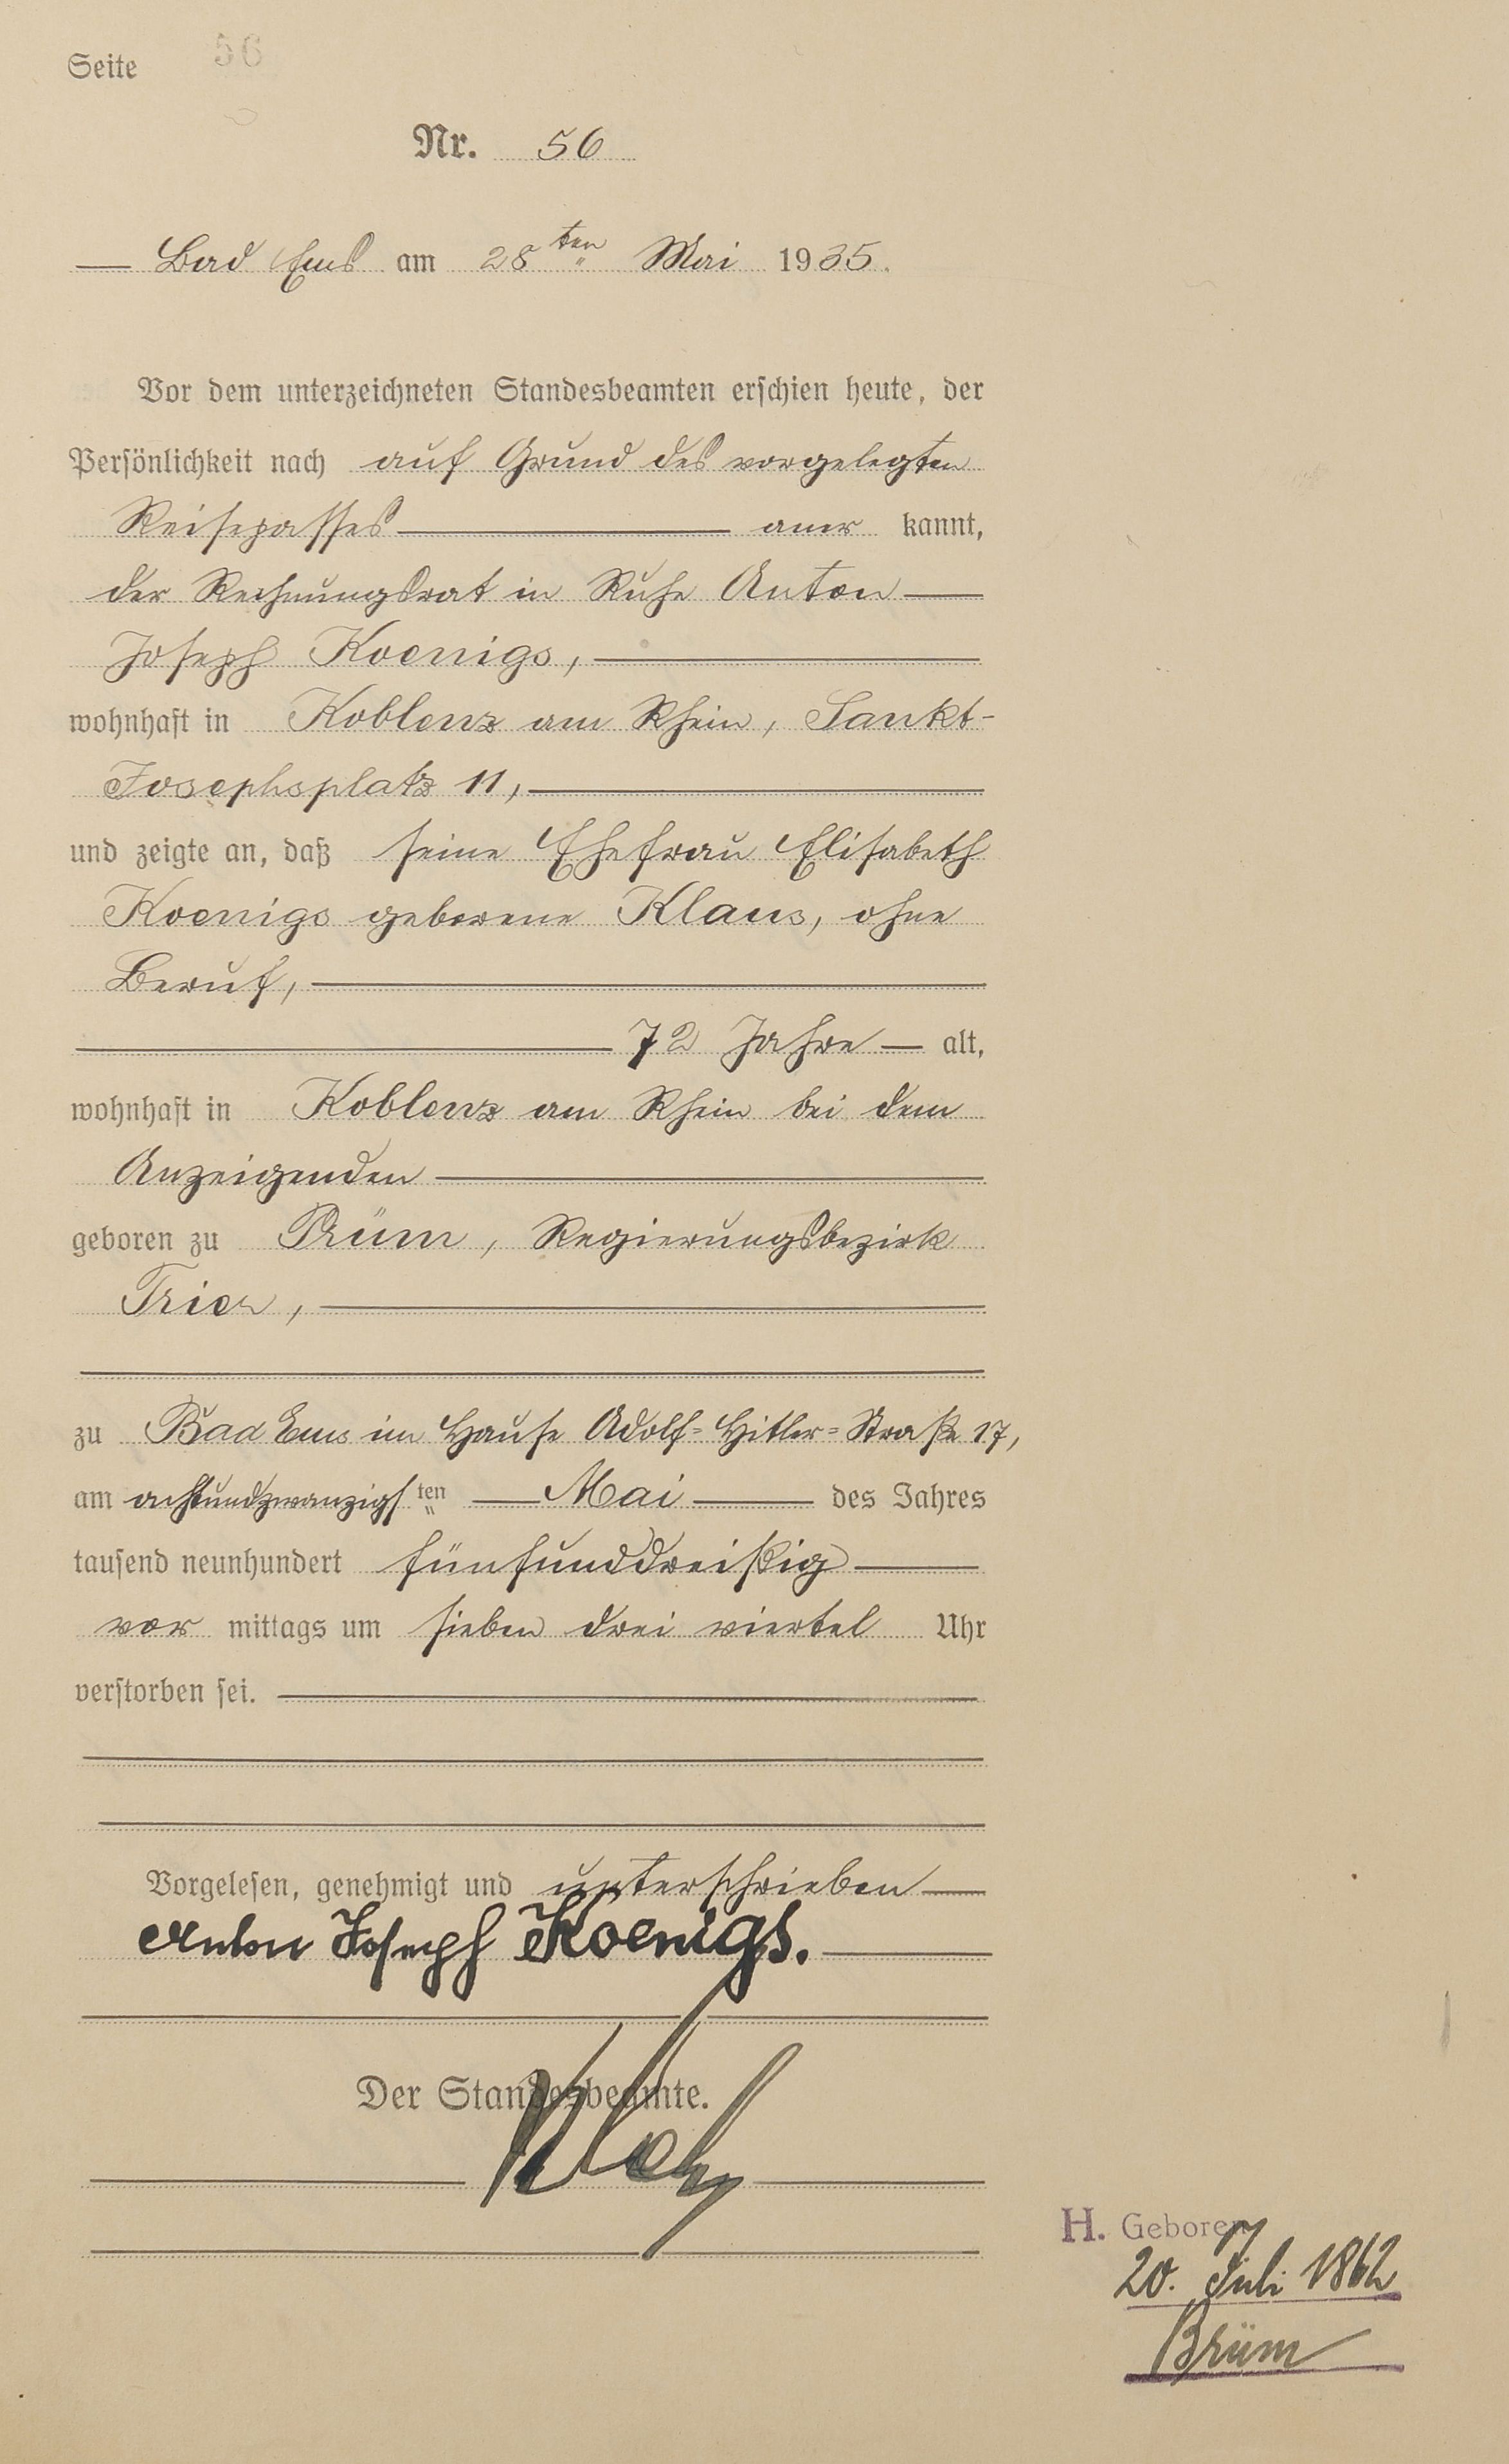 Seite 56
Nr. 56
Bad Ems am 28ten Mai 1935.
Vor dem unterzeichneten Standesbeamten erschien heute, der
Persönlichkeit nach auf Grund des vorgelegten
Reisepasses aner kannt,
der Rechnungsrat in Ruhe Anton
Joseph Koenigs,
wohnhaft in Koblenz am Rhein, Sankt-
Josephsplatz 11,
und zeigte an, daß seine Ehefrau Elisabeth
Koenigs geborene Klaus, ohne
Beruf,
72 Jahre alt,
wohnhaft in Koblenz am Rhein bei dem
Anzeigenden
geboren zu Prüm, Regierungsbezirk
Trier,
zu Bad Ems im Hause Adolf-Hitler-Straße 17,
am achtundzwanzigsten Mai des Jahres
tausend neunhundert fünfunddreißig
vor mittags um sieben drei viertel Uhr
verstorben sei.
Vorgelesen, genehmigt und unterschrieben
Anton Joseph Koenigs.
Der Standesbeamte.
H. Geboren
20. Juli 1862
Brüm